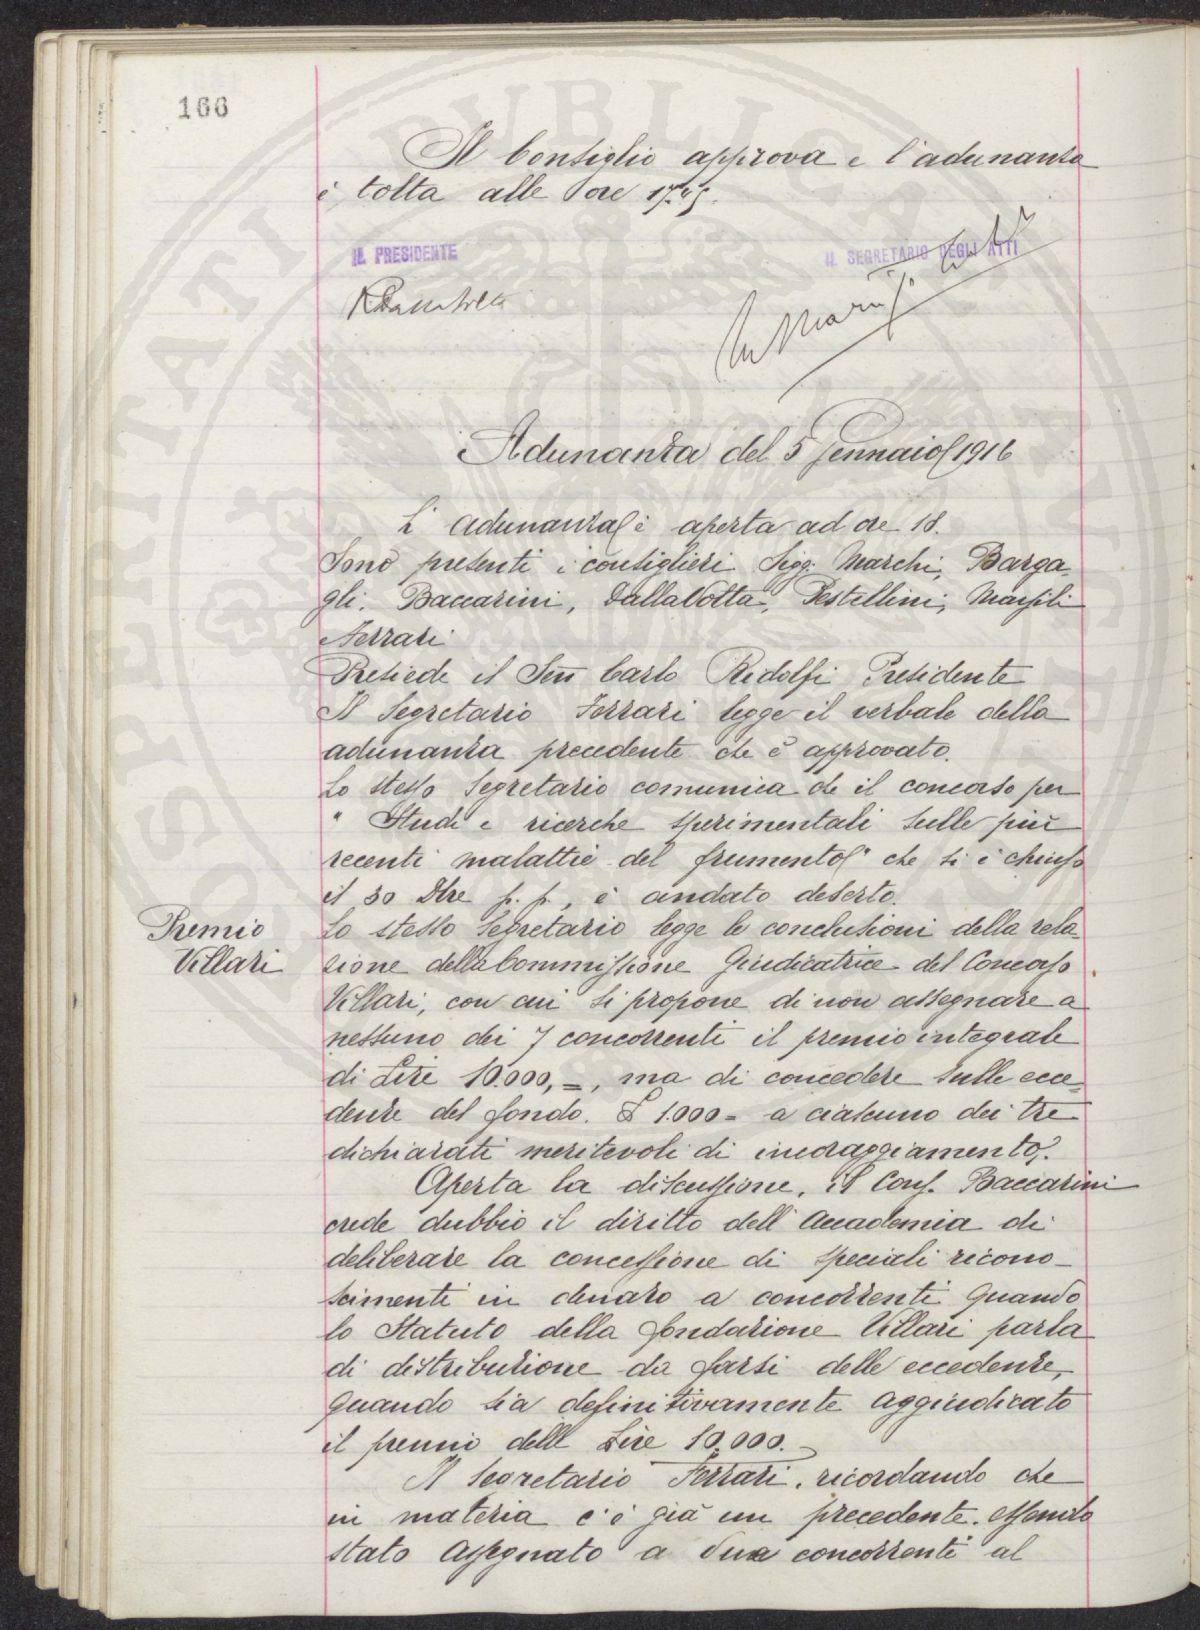 166
Il Consiglio approva e l'adunanza
è tolta alle ore 17.45.
IL PRESIDENTE
IL SEGRETARIO DEGLI ATTI
Adunanza del 5 Gennaio 1916
L'adunanza è aperta ad ore 18.
Sono presenti i consiglieri Sigg. Marchi, Barga-
gli, Baccarini, Dalla Volta, Pestellini, Marsili
Ferrari
Presiede il Sen Carlo Ridolfi Presidente
Il Segretario Ferrari legge il verbale della
adunanza precedente che è approvato.
Lo stesso Segretario comunica che il concorso per
" Studi e ricerche sperimentali sulle più
recenti malattie del frumento" che si è chiuso
il 30 Dbre p. p., è andato deserto.
Premio
Villari
Lo stesso Segretario legge le conclusioni della rela-
zione della Commissione Giudicatrice del Concorso
Villari, con cui si propone di non assegnare a
nessuno dei 7 concorrenti il premio integrale
di Lire 10.000,=, ma di concedere sulle ecce-
denze del fondo. £ 1.000= a ciascuno dei tre
dichiarati meritevoli di incoraggiamento.
Aperta la discussione, il Cons. Baccarini
crede dubbio il diritto dell'Accademia di
deliberare la concessione di speciali ricono-
scimenti in denaro a concorrenti quando
lo Statuto della fondazione Villari parla
di distribuzione da farsi delle eccedenze,
quando sia definitivamente aggiudicato
il premio delle Lire 10.000.
Il Segretario Ferrari, ricordando che
in materia c'è già un precedente, essendo
stato assegnato a due concorrenti al